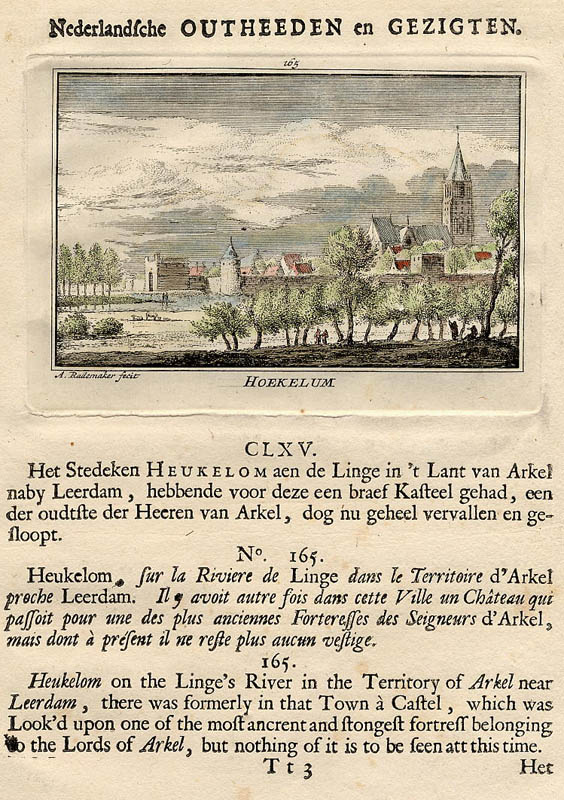 Nederlandſche OUTHEEDEN en GEZIGTEN.
165
A. Rademaker fecit
HOEKELUM
CLXV.
Het Stedeken HEUKELOM aen de Linge in 't Lant van Arkel
naby Leerdam, hebbende voor deze een braef Kaſteel gehad, een
der oudtſte der Heeren van Arkel, dog nu geheel vervallen en ge-
ſloopt.
Nº. 165.
Heukelom, ſur la Riviere de Linge dans le Territoire d'Arkel
proche Leerdam. Il y avoit autre fois dans cette Ville un Château qui
paſſoit pour une des plus anciennes Fortereſſes des Seigneurs d'Arkel,
mais dont à préſent il ne reſte plus aucun veſtige.
165.
Heukelom on the Linge's River in the Territory of Arkel near
Leerdam, there was formerly in that Town à Caſtel, which was
Look'd upon one of the moſt ancrent and ſtongeſt fortreſſ belonging
to the Lords of Arkel, but nothing of it is to be ſeen att this time.
Tt 3 Het